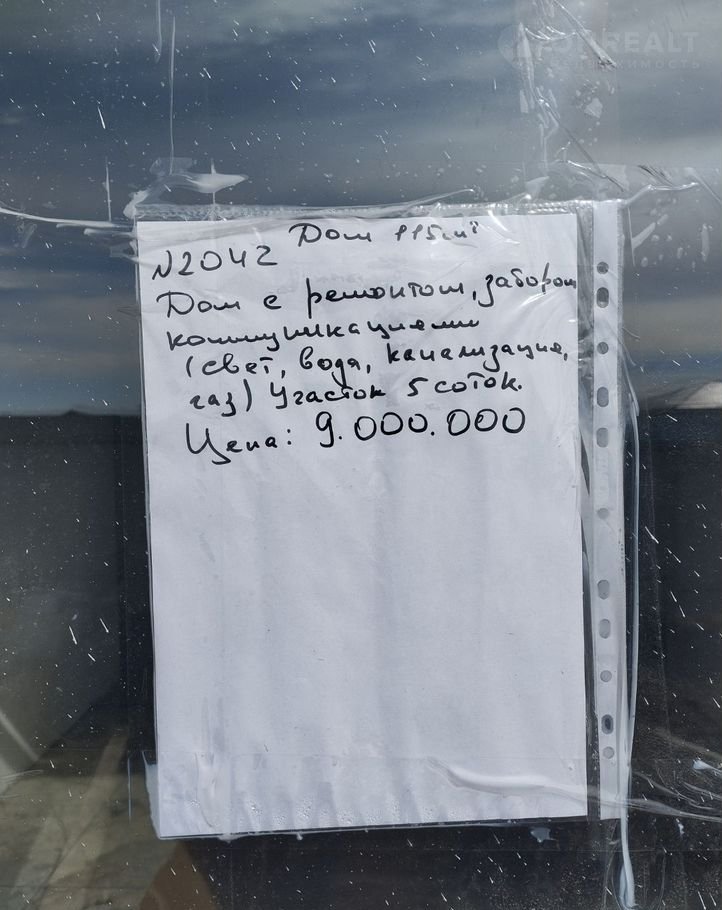 REALT
Дом 115 м²
N2042
Дом с ремонтом, забором
коммуникациями
(свет, вода, канализация,
газ) Участок 5 соток.
Цена: 9.000.000